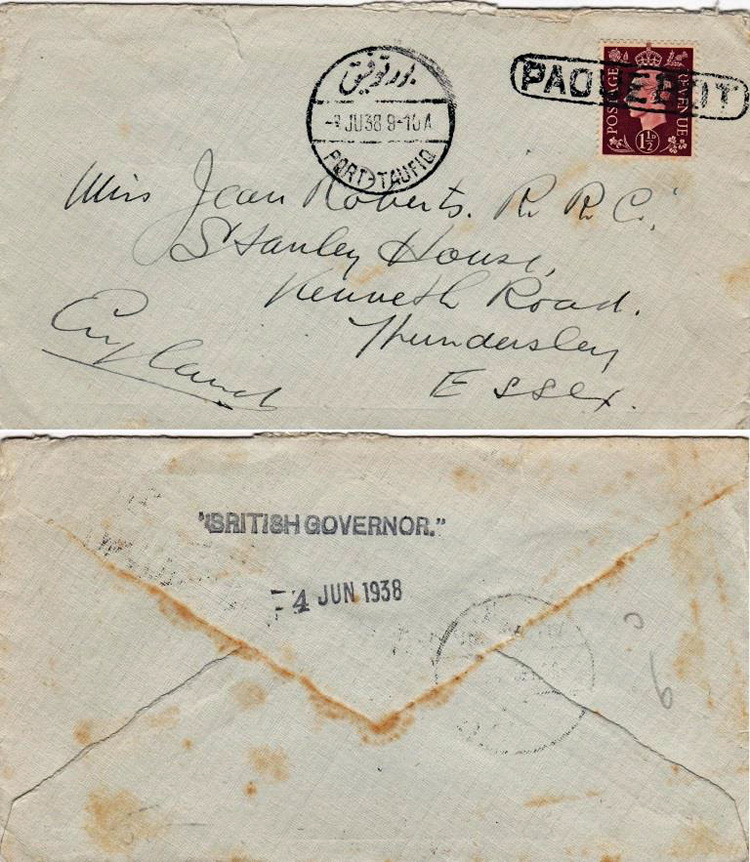 بور توفيق
JU38 9-10A
PORT-TAUFIQ
PAQUEBOT
POSTAGE REVENUE
1½D
Miss Jean Roberts. R. R. C.,
Stanley House,
Kenneth Road.
Thundersley
Essex.
England
"BRITISH GOVERNOR."
-4 JUN 1938